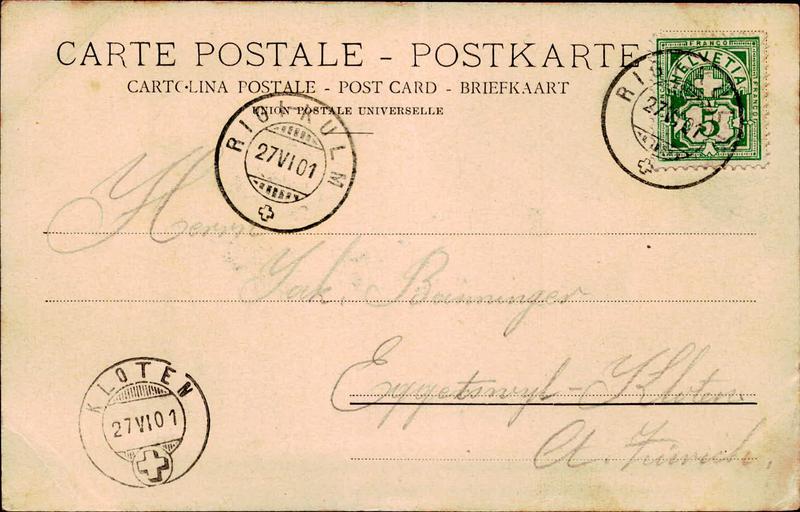 CARTE POSTALE - POSTKARTE
CARTOLINA POSTALE - POST CARD - BRIEFKAART
UNION POSTALE UNIVERSELLE
FRANCO
HELVETIA
5
RIGI
27 VI 01
RIGI-KULM
27 VI 01
Herrn
Jak. Bänninger
Eggetswyl-Kloten
Ct. Zürich.
KLOTEN
27 VI 01